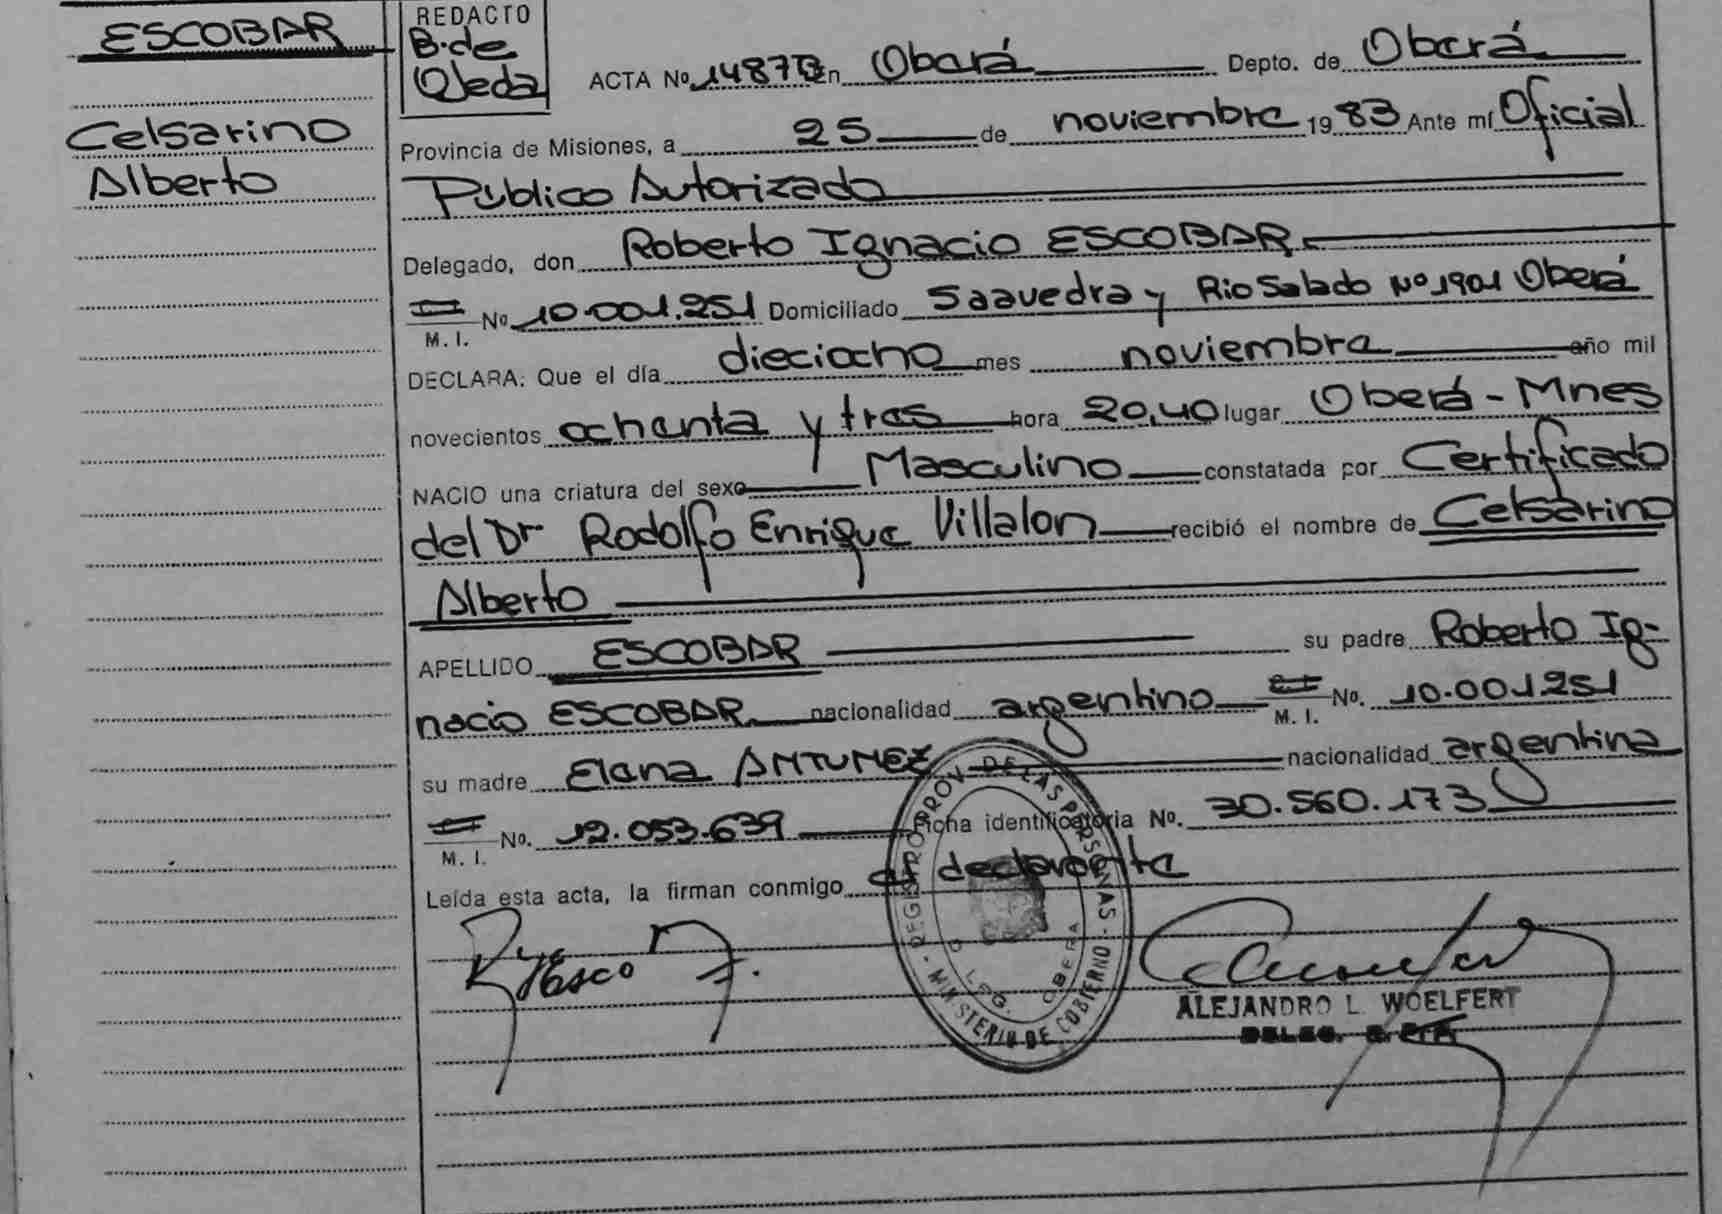 ESCOBAR
Celsarino
Alberto
REDACTO
B. de
Ojeda
ACTA Nº 1487 En Oberá Depto. de Oberá
Provincia de Misiones, a 25 de noviembre 1983 Ante mí Oficial
Público Autorizado
Delegado, don Roberto Ignacio ESCOBAR.
M. I. Nº 10.001.251 Domiciliado Saavedra y Rio Salado Nº 1901 Oberá
DECLARA: Que el día dieciocho mes noviembre año mil
novecientos ochenta y tres hora 20,40 lugar Oberá - Mnes
NACIO una criatura del sexo Masculino constatada por Certificado
del Dr Rodolfo Enrique Villalon recibió el nombre de Celsarino
Alberto
APELLIDO ESCOBAR su padre Roberto Ig-
nacio ESCOBAR. nacionalidad argentino M. I. No. 10.001251
su madre Elena ANTUNEZ nacionalidad argentina
M. I. No. 12.053.639 Ficha identificatoria No. 30.560.173
Leída esta acta, la firman conmigo el declarante
REGISTRO PROV. DE LAS PERSONAS - MINISTERIO DE GOBIERNO -
OBERA
ALEJANDRO L. WOELFERT